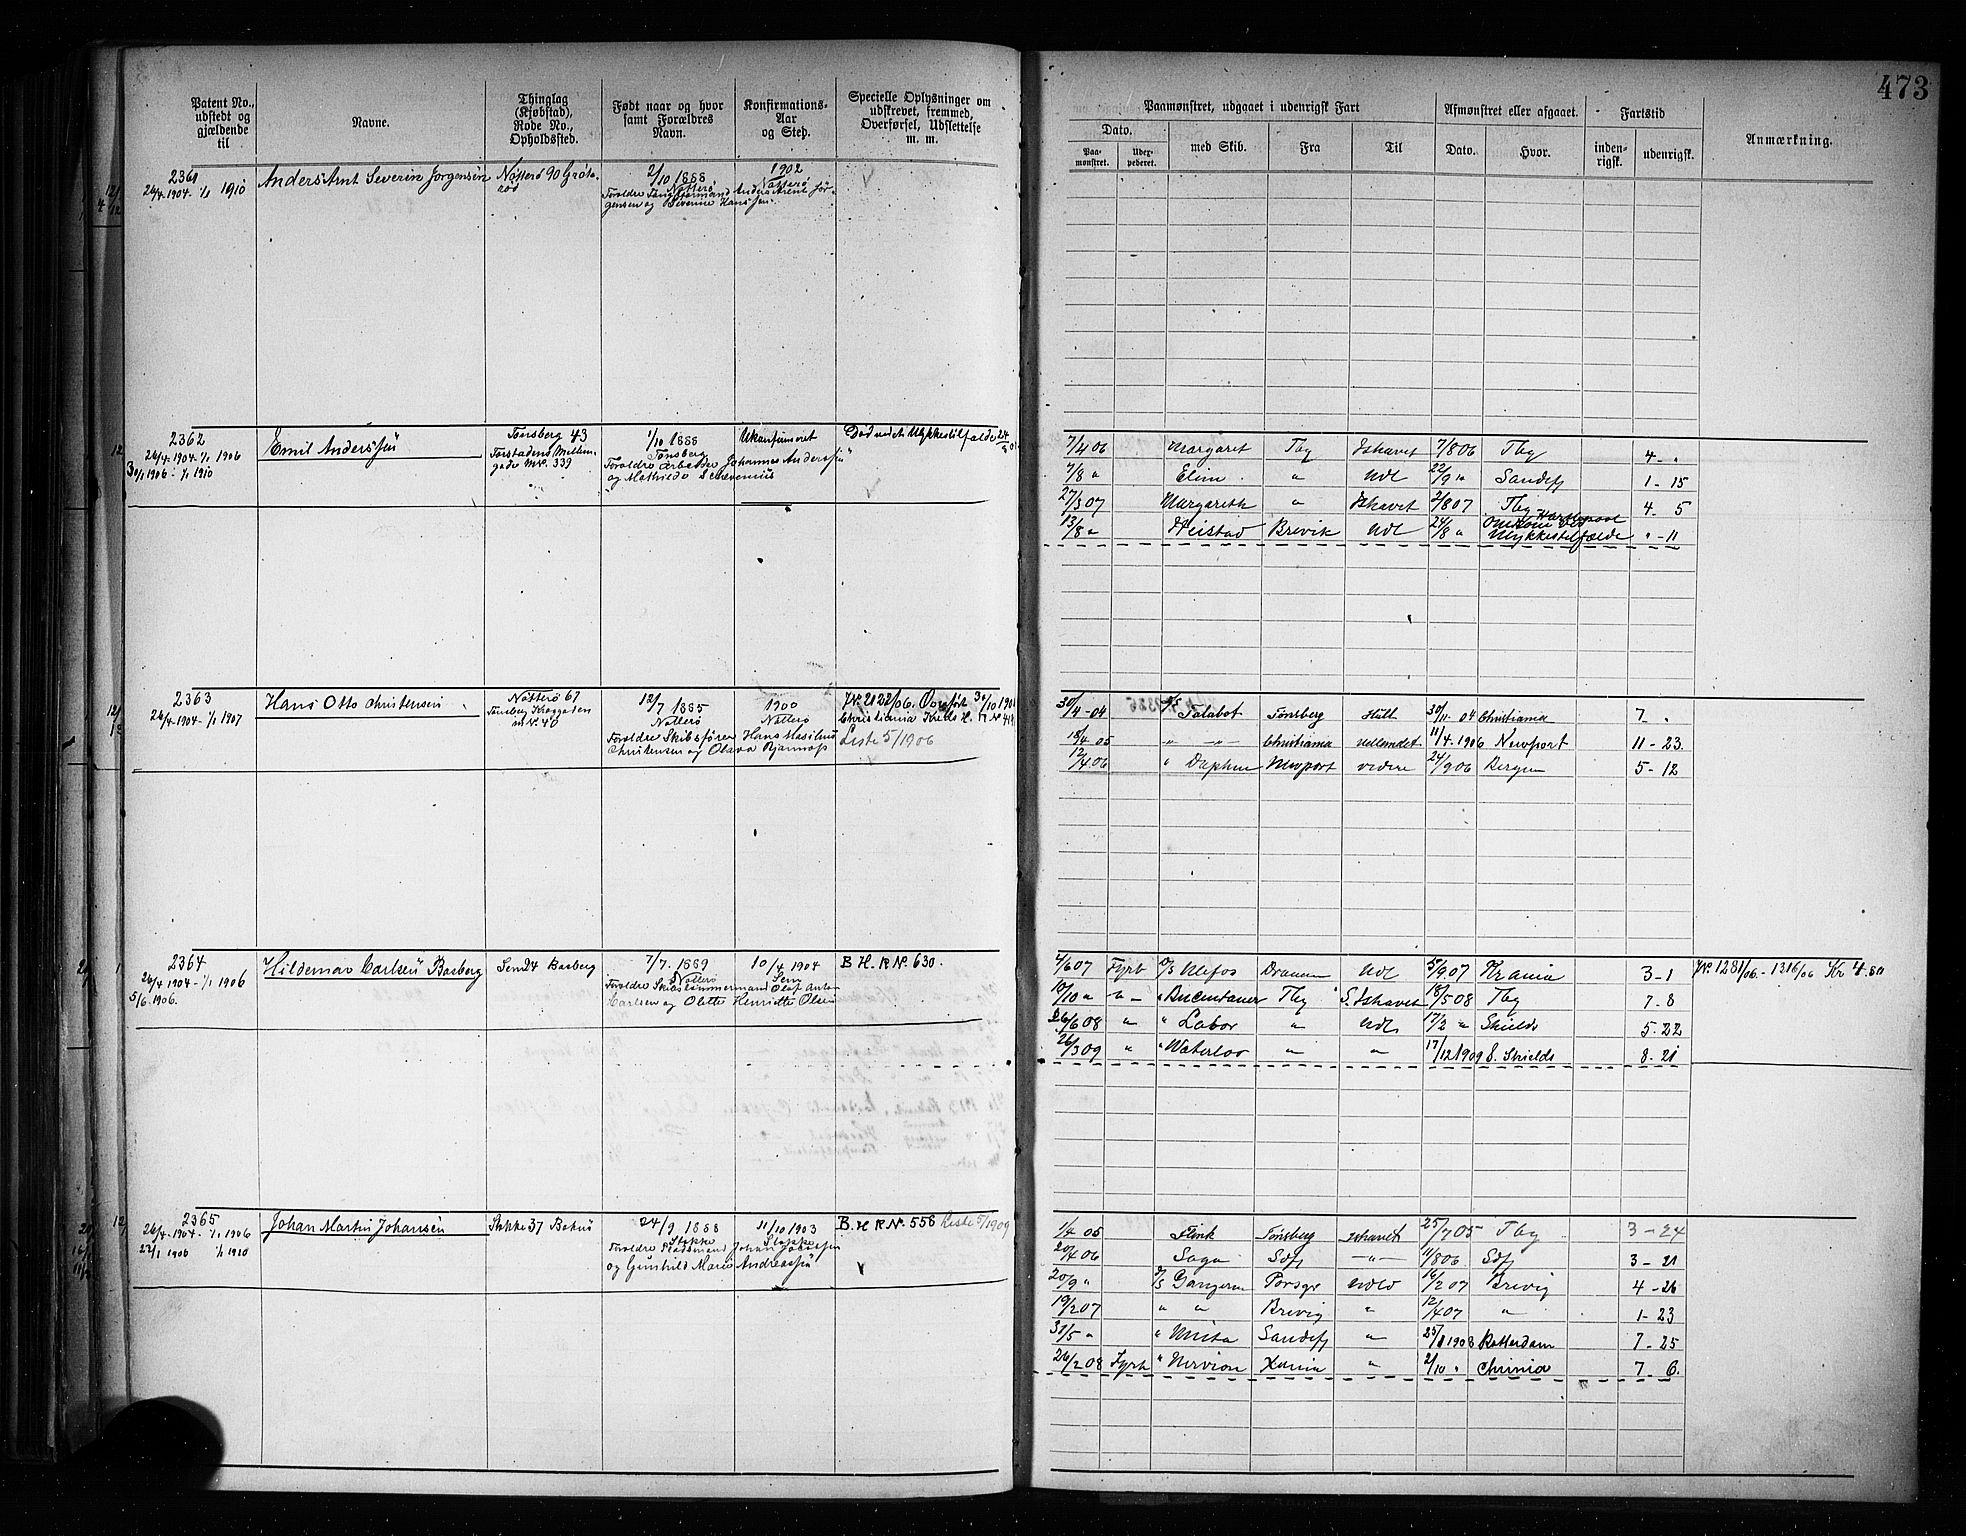 473
Patent No., udstedt og gjældende til
Navne.
Thinglag (Kjøbstad), Rode No., Opholdssted.
Født naar og hvor samt Forældres Navn.
Konfirmations-Aar og Sted.
Specielle Oplysninger om udskrevet, fremmed, Overførsel, Udslettelse m. m.
Paamønstret, udgaaet i udenrigsk Fart
Afmønstret eller afgaaet.
Fartstid
Anmærkning.
Dato.
Paa-mønstret.
Uder-pederet.
med Skib.
Fra
Til
Dato.
Hvor.
inden-rigsk.
udenrigsk.
2361
26/4 1904 - 1/1 1910
Anders Arnt Severin Jørgensen
Nøtterø 90
2/10 1888
Nøtterø
1902
Nøtterø
Forældre
Anders Arent Jør-
gensen og Severine Hanssen
2362
26/4 1904 - 1/1 1906
30/1 1906 - 1/1 1910
Emil Anderssen
Tønsberg 43
1/10 1888
Tønsberg
Forældre Arbeider Johannes Anderssen
og Mathilde
Ukonfirmeret
Død ved et Ulykkestilfælde 24/8 07
7/4 06 Margaret Tbg Ishavet 7/8 06 Tbg 4 - "
7/8 " Elim " Udl 22/9 " Sandefj 1 - 15
27/3 07 Margareth " Ishavet 2/8 07 Tbg 4 - 5
13/8 " Heistad Brevik Udl 24/8 " Omkom ved Ulykkestilfælde " - 11
2363
26/4 1904 - 1/1 1907
Hans Otto Christensen
Nøtterø 67
12/7 1885
Nøtterø
1900
Nøtterø
Forældre Skibsfører Hans Masilius
Christensen og Olava Bjarmop
No. 2122/06. Overført 31/10 190
Christiania Kreds H. R No 414
Liste 5/1906
30/4 - 04 Talabot Tønsberg Hull 30/11 04 Christiania 7 "
18/4 05 " - " - Christiania Udlandet 11/4 1906 Newport 11 - 23
12/4 06 " Daphne Newport videre 24/9 06 Bergen 5 - 12
2364
26/4 1904 - 1/1 1906
5/6 1906.
Hildemar Carlsen Basberg
Sem 24 Basberg
7/7 1889
Nøtterø
10/4 1904
Sem
Forældre Skibstømmermand Olaf Anton
Carlsen og Olette Henriette Olsen
B H. R No. 630.
4/6 07 Fyrb D/S Ulefos Drammen Udl 5/9 07 Krania 3 - 1 No. 1281/06 - 1316/06 Kr 4.80
10/10 " - " - " Bucentauer Tbg S. Ishavet 18/5 08 Tbg 7 - 8
26/6 08 " " Labor " Udl 17/2 " Shields 5 - 22
26/3 09 " " Waterloo " " 17/12 1909 S. Shields 8 - 21
2365
26/4 1904 - 1/1 1906
22/1 1906 1/1 1910
Johan Martin Johansen
Stokke 37
24/9 1888
Stokke
11/10 1903
Stokke
Forældre Pladsmand Johan Jacobsen
og Gunhild Marie Andreassen
B. H R No. 558 Liste 5/1909
1/4 05 Flink Tønsberg Ishavet 25/7 05 Tbg 3 - 24
20/4 06 Saga Sdfj - " - 11/8 06 Sdfj 3 - 21
20/9 " D/S Gangeren Porsgr Udld 16/2 07 Brevig 4 - 26
19/2 07 " " Brevig " 12/4 07 " 1 - 23
31/5 " " Unita Sandefj " 25/1 1908 Rotterdam 7 - 25
26/2 08 Fyrb " Nervion Xania " 2/10 " Chrinia 7 - 6